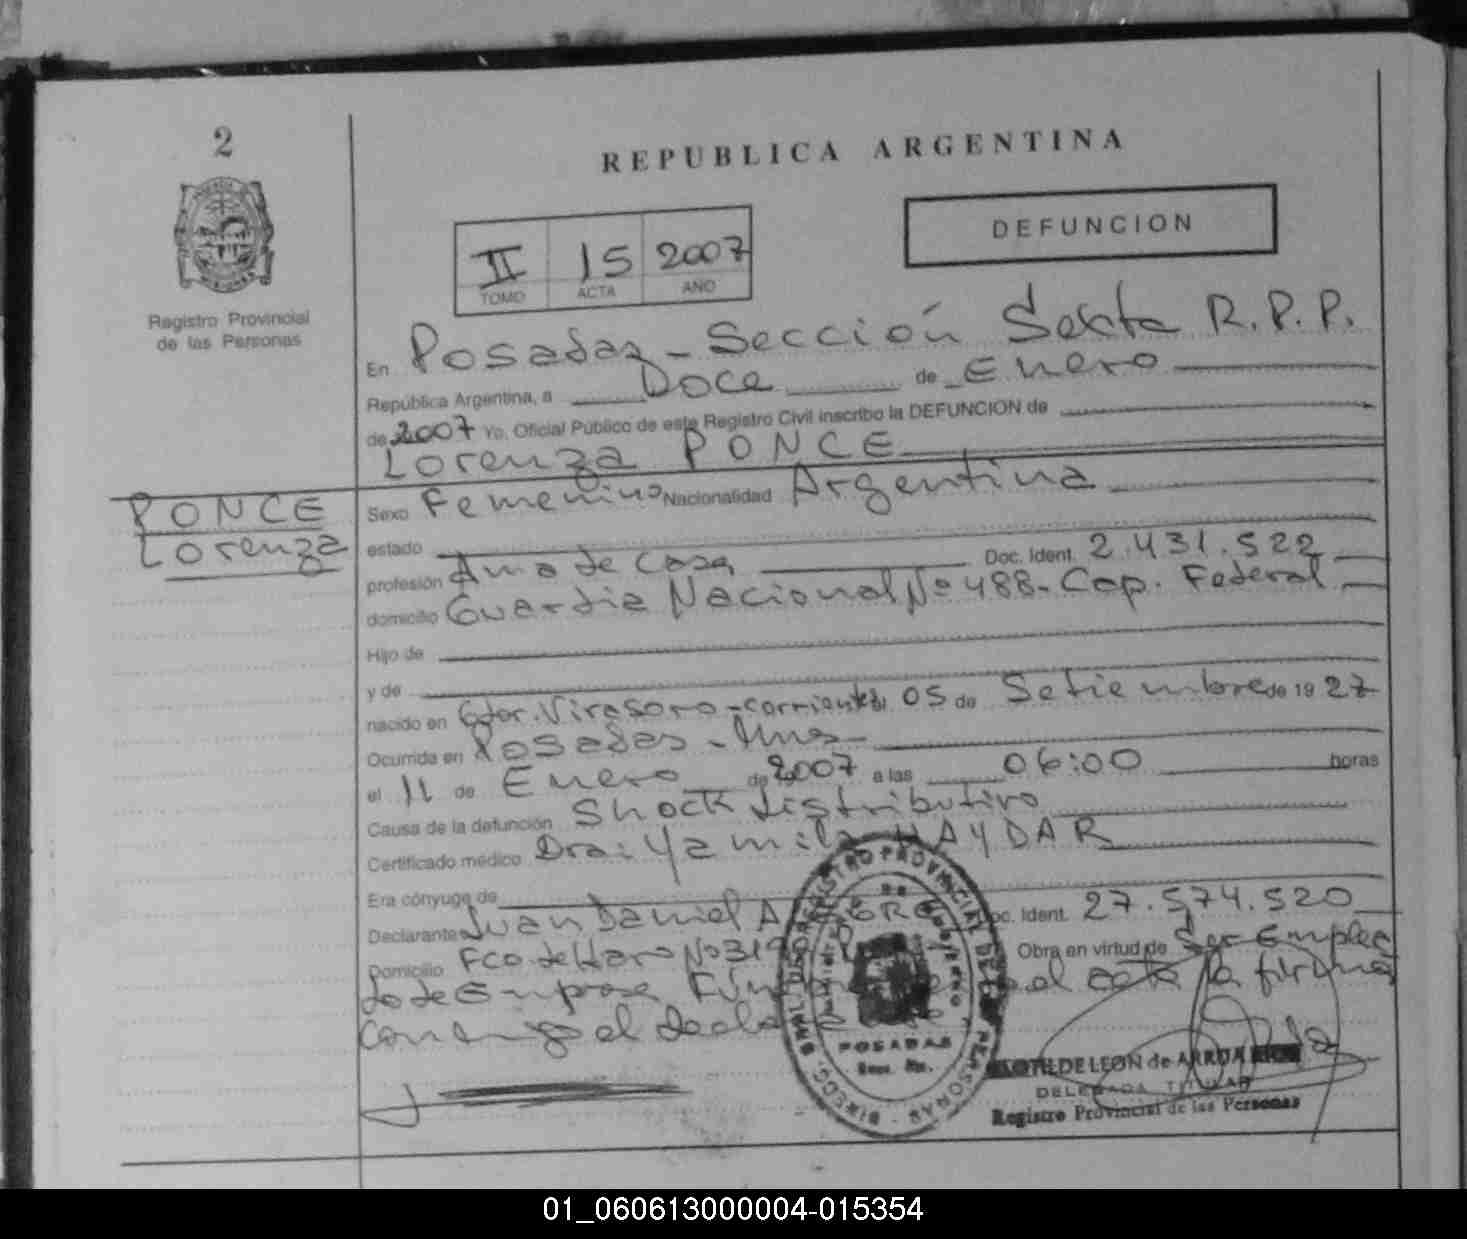 2
REPUBLICA ARGENTINA
Registro Provincial
de las Personas
II 15 2007
TOMO ACTA AÑO
DEFUNCION
En Posadas - Sección Sexta R.P.P.
República Argentina, a Doce de Enero
de 2007 Yo, Oficial Público de este Registro Civil inscribo la DEFUNCION de
Lorenza PONCE
PONCE
Lorenza
Sexo Femenino Nacionalidad Argentina
estado
profesión Ama de Casa Doc. Ident. 2.431.522
domicilio Guardia Nacional Nº 488 - Cap. Federal
Hijo de
y de
nacido en Gdor. Virasoro - Corrientes 05 de Setiembre de 19 27
Ocurrida en Posadas - Mnes
el 11 de Enero de 2007 a las 06:00 horas
Causa de la defunción Shock distributivo
Certificado médico Dra: Yamila HAYDAR
Era cónyuge de
Declarante Juan Daniel Doc. Ident. 27.574.520
Domicilio Fco. de Haro Nº Obra en virtud de Ser Emplea
do de Empresa acta la firma
conmigo el
REGISTRO PROVINCIAL DE LAS PERSONAS
POSADAS
CLOTILDE LEON de ARRUA
DELEGADA TITULAR
Registro Provincial de las Personas
01_060613000004-015354